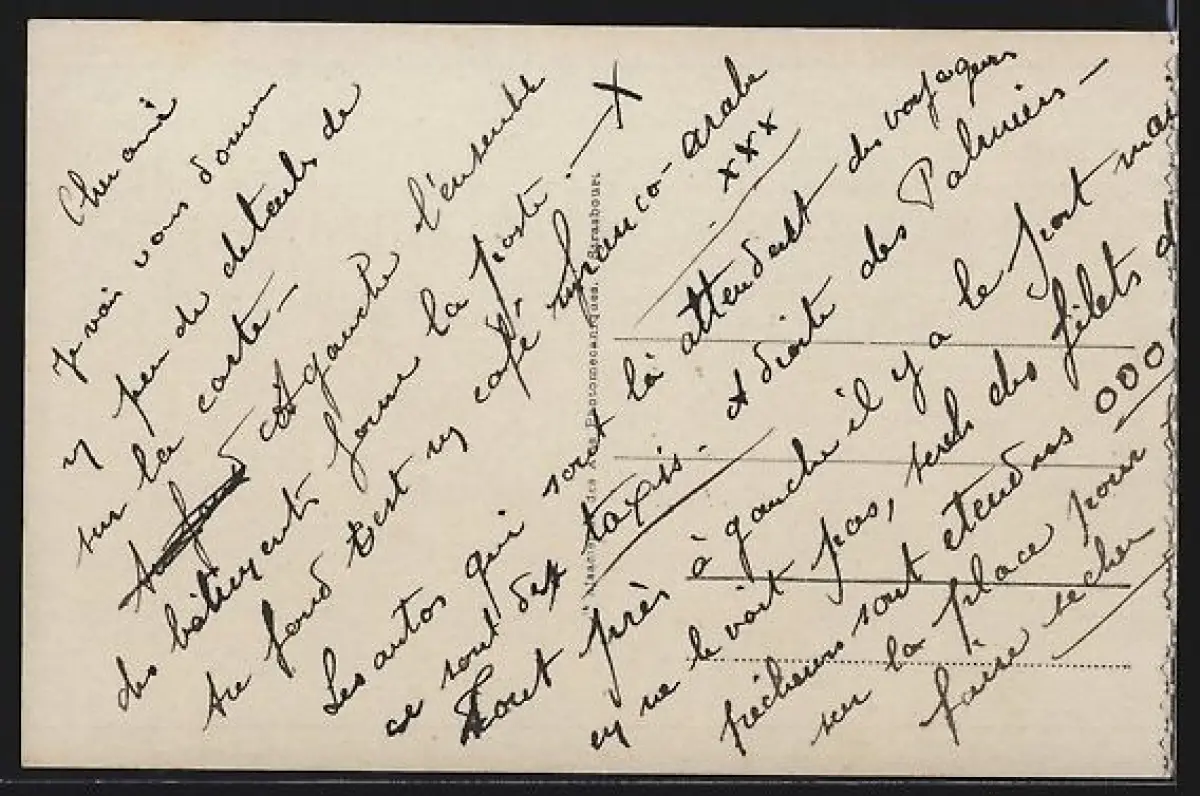 Cher ami
Je vais vous donner
un peu de details de
sur la carte -
A gauche l'ensemble
des bâtiments forme la poste - X
Au fond c'est un café franco-arabe
xxx
Les autos qui sont là attendent des voyageurs
ce sont des taxis. A droite des Palmiers -
Tout près à gauche il y a le port mais
on ne le voit pas, seuls des filets
pêcheurs sont etendus 000
sur la place pour
faire secher
des Arts Photomécaniques, Strasbourg